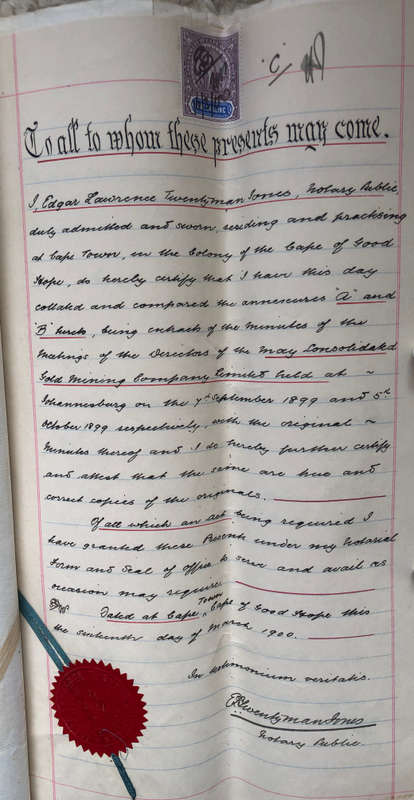 "C"
To all to whom these presents may come.
I, Edgar Lawrence Twentyman Jones, Notary Public,
duly admitted and sworn, residing and practising
at Cape Town, in the Colony of the Cape of Good
Hope, do hereby certify that I have this day
collated and compared the annexures "A" and
"B" hereto, being extracts of the Minutes of the
Meetings of the Directors of the May Consolidated
Gold Mining Company Limited held at
Johannesburg on the 7th September 1899 and 5th
October 1899 respectively, with the original
Minutes thereof and I do hereby further certify
and attest that the same are true and
correct copies of the originals.
Of all which an act being required I
have granted these Presents under my Notarial
Form and Seal of Office to serve and avail as
occasion may require.
Dated at Cape Town, Cape of Good Hope this
the sixteenth day of March 1900.
In testimonium veritatis.
ETwentymanJones
Notary Public.